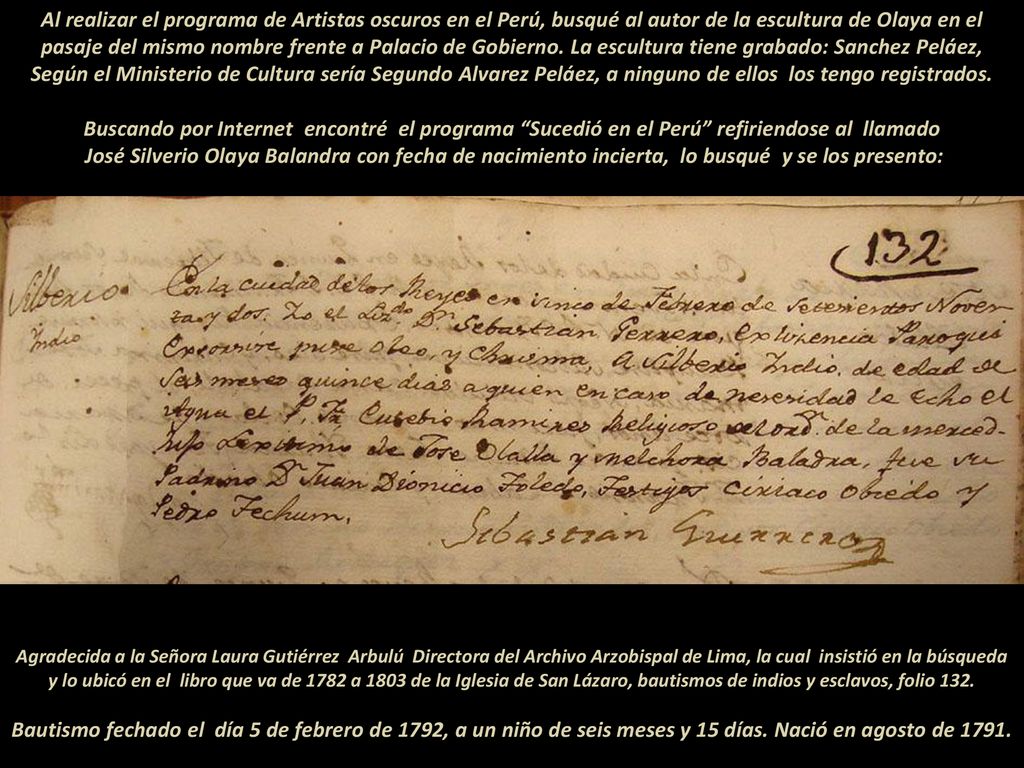 Al realizar el programa de Artistas oscuros en el Perú, busqué al autor de la escultura de Olaya en el
pasaje del mismo nombre frente a Palacio de Gobierno. La escultura tiene grabado: Sanchez Peláez,
Según el Ministerio de Cultura sería Segundo Alvarez Peláez, a ninguno de ellos los tengo registrados.
Buscando por Internet encontré el programa “Sucedió en el Perú” refiriendose al llamado
José Silverio Olaya Balandra con fecha de nacimiento incierta, lo busqué y se los presento:
132
Silberio
Indio
En la cuidad de los Reyes en sinco de Febrero de setesientos Noven
ta y dos. Yo el Lizdo Dn Sebastian Gerrero, ex Lisencia Paroqui
Exsorsise, puse oleo, y Chrisma, A Silberio Indio, de edad de
seis meses quince dias a quien en caso de nesesidad le echo el
Agua el P. Fr. Eusebio Ramires Religioso del ord.n de la merced-
hijo Lexitimo de Jose Olalla y Melchora Baladra, fue su
Padrino Dn Juan Dionicio Toledo, Testigos Ciriaco Obiedo y
Pedro Fechum.
Sebastian Guerrero
Agradecida a la Señora Laura Gutiérrez Arbulú Directora del Archivo Arzobispal de Lima, la cual insistió en la búsqueda
y lo ubicó en el libro que va de 1782 a 1803 de la Iglesia de San Lázaro, bautismos de indios y esclavos, folio 132.
Bautismo fechado el día 5 de febrero de 1792, a un niño de seis meses y 15 días. Nació en agosto de 1791.